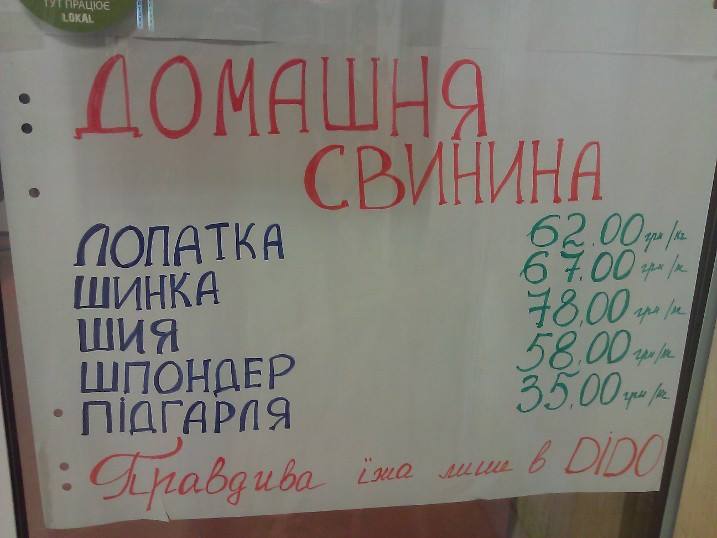 ТУТ ПРАЦЮЄ
LOKAL
ДОМАШНЯ
СВИНИНА
ЛОПАТКА 62.00 грн/кг
ШИНКА 67.00 грн/кг
ШИЯ 78,00 грн/кг
ШПОНДЕР 58.00 грн/кг
ПІДГАРЛЯ 35.00 грн/кг
Правдива їжа лише в DIDO